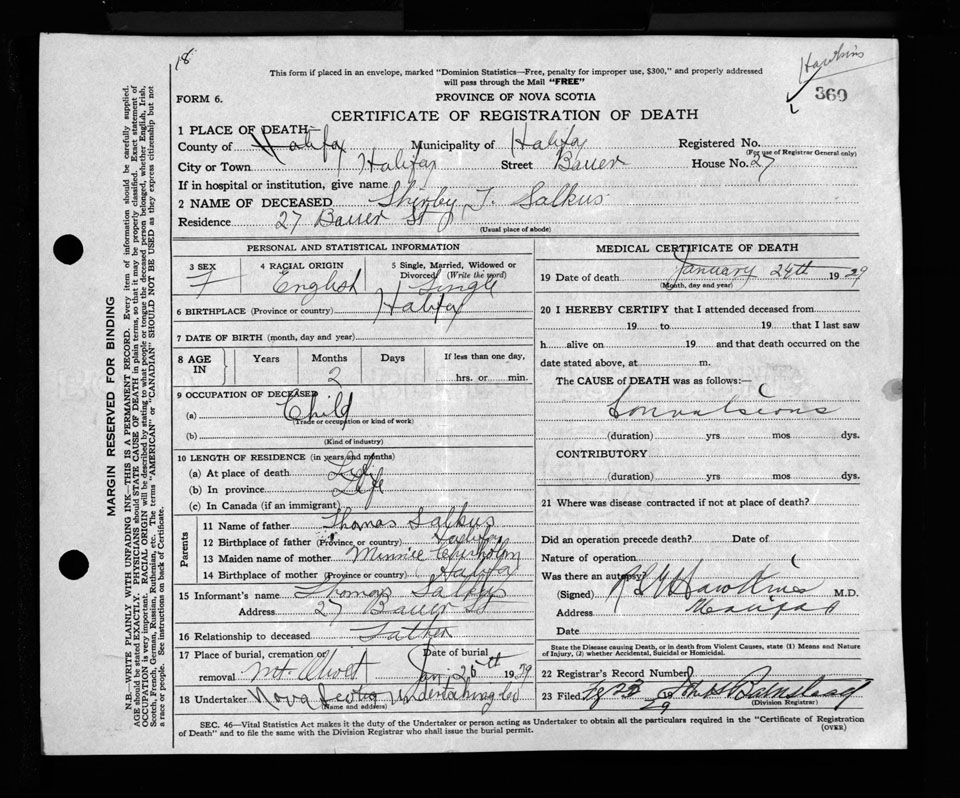 18
Hawkins
This form if placed in an envelope, marked "Dominion Statistics—Free, penalty for improper use, $300," and properly addressed
will pass through the Mail "FREE"
369
FORM 6.
PROVINCE OF NOVA SCOTIA
CERTIFICATE OF REGISTRATION OF DEATH
1 PLACE OF DEATH—
County of Halifax Municipality of Halifax Registered No.
(For use of Registrar General only)
City or Town Halifax Street Bauer House No. 27
If in hospital or institution, give name
2 NAME OF DECEASED Shirley T. Salkus
Residence 27 Bauer St
(Usual place of abode)
PERSONAL AND STATISTICAL INFORMATION
3 SEX F
4 RACIAL ORIGIN English
5 Single, Married, Widowed or Divorced (Write the word) Single
6 BIRTHPLACE (Province or country) Halifax
7 DATE OF BIRTH (month, day and year)
8 AGE IN Years Months 2 Days If less than one day, hrs. or min.
9 OCCUPATION OF DECEASED
(a) Child
(Trade or occupation or kind of work)
(b)
(Kind of industry)
10 LENGTH OF RESIDENCE (in years and months)
(a) At place of death Life
(b) In province Life
(c) In Canada (if an immigrant)
Parents
11 Name of father Thomas Salkus
12 Birthplace of father (Province or country) Halifax
13 Maiden name of mother Minnie Chisholm
14 Birthplace of mother (Province or country) Halifax
15 Informant's name Thomas Salkus
Address 27 Bauer St
16 Relationship to deceased Father
17 Place of burial, cremation or removal Mt. Olivet Date of burial Jan, 25th 1929
18 Undertaker Nova Scotia Undertaking Co
(Name and address)
MEDICAL CERTIFICATE OF DEATH
19 Date of death January 24th 1929
(Month, day and year)
20 I HEREBY CERTIFY that I attended deceased from
19 to 19 that I last saw
h alive on 19 and that death occurred on the
date stated above, at m.
The CAUSE of DEATH was as follows:—
Convulsions
(duration) yrs mos dys.
CONTRIBUTORY
(duration) yrs. mos dys.
21 Where was disease contracted if not at place of death?
Did an operation precede death? Date of
Nature of operation
Was there an autopsy?
(Signed) Hawkins M.D.
Address Halifax
Date
State the Disease causing Death, or in death from Violent Causes, state (1) Means and Nature
of Injury, (2) whether Accidental, Suicidal or Homicidal.
22 Registrar's Record Number
23 Filed 19 29
(Division Registrar)
SEC. 46—Vital Statistics Act makes it the duty of the Undertaker or person acting as Undertaker to obtain all the particulars required in the "Certificate of Registration
of Death" and to file the same with the Division Registrar who shall issue the burial permit.
(OVER)
MARGIN RESERVED FOR BINDING
N.B.—WRITE PLAINLY WITH UNFADING INK—THIS IS A PERMANENT RECORD. Every item of information should be carefully supplied.
AGE should be stated EXACTLY. PHYSICIANS should STATE CAUSE OF DEATH in plain terms, so that it may be properly classified. Exact statement of
OCCUPATION is very important. RACIAL ORIGIN will be described by stating to what people or tongue the deceased person belonged, whether English, Irish,
Scotch, French, German, Russian, Ruthenian, etc. The terms "AMERICAN" or "CANADIAN" SHOULD NOT BE USED as they express citizenship but not
a race or people. See instructions on back of Certificate.